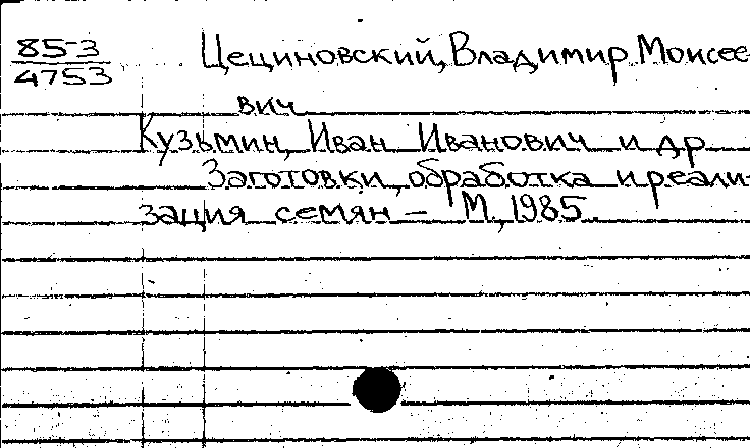 85-3
4753
Цециновский, Владимир Моисее-
вич
Кузьмин, Иван Иванович и др
Заготовки, обработка и реали-
зация семян – М., 1985.